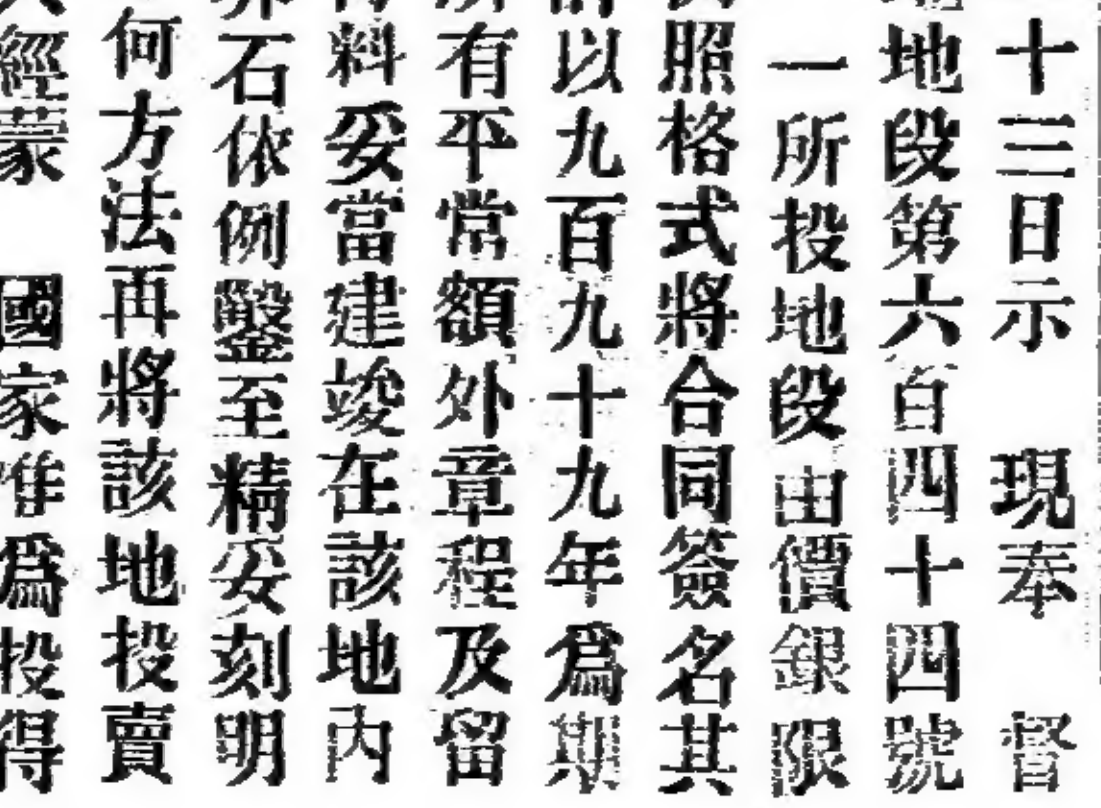 十三日示 現奉 督
地段第六百四十四號
一所投地段由價銀限
照格式將合同簽名其
以九百九十九年為期
有平常額外章程及留
料妥當建竣在該地內
石依例鑿至精妥刻明
何方法再將該地投賣
經蒙 國家准爲投得